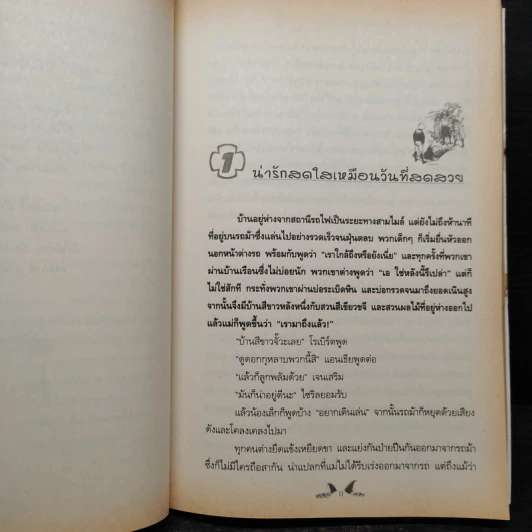 1 น่ารักสดใสเหมือนวันที่สดสวย
บ้านอยู่ห่างจากสถานีรถไฟเป็นระยะทางสามไมล์ แต่ยังไม่ถึงห้านาที
ที่อยู่บนรถม้าซึ่งแล่นไปอย่างรวดเร็วจนฝุ่นตลบ พวกเด็กๆ ก็เริ่มยื่นหัวออก
นอกหน้าต่างรถ พร้อมกับพูดว่า “เราใกล้ถึงหรือยังเนี่ย” และทุกครั้งที่พวกเขา
ผ่านบ้านเรือนซึ่งไม่บ่อยนัก พวกเขาต่างพูดว่า “เอ ใช่หลังนี้รึเปล่า” แต่ก็
ไม่ใช่สักที กระทั่งพวกเขาผ่านบ่อระเบิดหิน และบ่อกรวดจนมาถึงยอดเนินสูง
จากนั้นจึงมีบ้านสีขาวหลังหนึ่งกับสวนสีเขียวขจี และสวนผลไม้ที่อยู่ห่างออกไป
แล้วแม่ก็พูดขึ้นว่า “เรามาถึงแล้ว!”
“บ้านสีขาวจั๊วะเลย” โรเบิร์ตพูด
“ดูดอกกุหลาบพวกนี้สิ” แอนเธียพูดต่อ
“แล้วก็ลูกพลัมด้วย” เจนเสริม
“มันก็น่าอยู่ดีนะ” ไซริลยอมรับ
แล้วน้องเล็กก็พูดบ้าง “อยากเดินเล่น” จากนั้นรถม้าก็หยุดด้วยเสียง
ดังและโคลงเคลงไปมา
ทุกคนต่างยืดแข้งเหยียดขา และแย่งกันป่ายปีนกันออกมาจากรถม้า
ซึ่งก็ไม่มีใครถือสากัน น่าแปลกที่แม่ไม่ได้รีบเร่งออกมาจากรถ แต่ถึงแม้ว่า
11